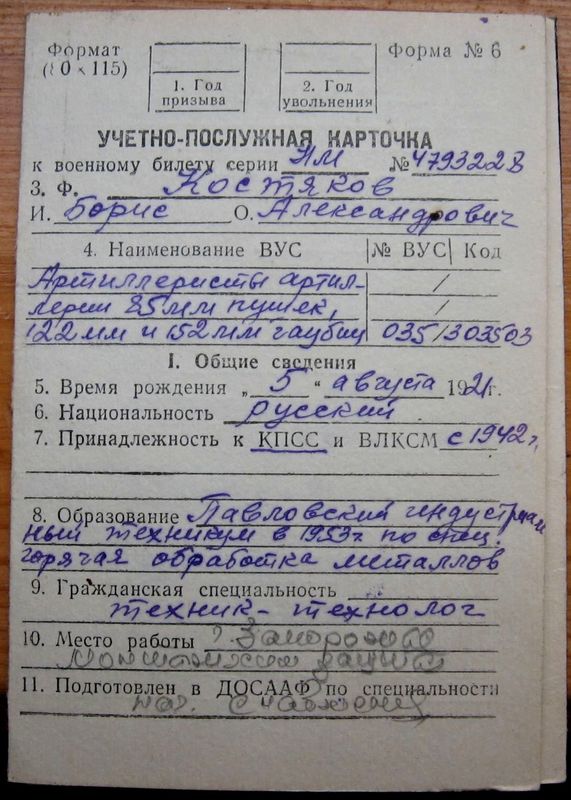 Формат
Форма № 6
(80 × 115)
1. Год призыва
2. Год увольнения
УЧЕТНО-ПОСЛУЖНАЯ КАРТОЧКА
к военному билету серии НМ № 4793228
3. Ф. Костяков
И. Борис О. Александрович
4. Наименование ВУС | № ВУС | Код
Артиллеристы артил- /
лерии 85мм пушек, /
122мм и 152мм гаубиц 035/303503
I. Общие сведения
5. Время рождения „5“ августа 1921г.
6. Национальность русский
7. Принадлежность к КПСС и ВЛКСМ с 1942г,
8. Образование Павловский индустриаль
ный техникум в 1953г по спец.
горячая обработка металлов
9. Гражданская специальность
техник-технолог
10. Место работы
11. Подготовлен в ДОСААФ по специальности